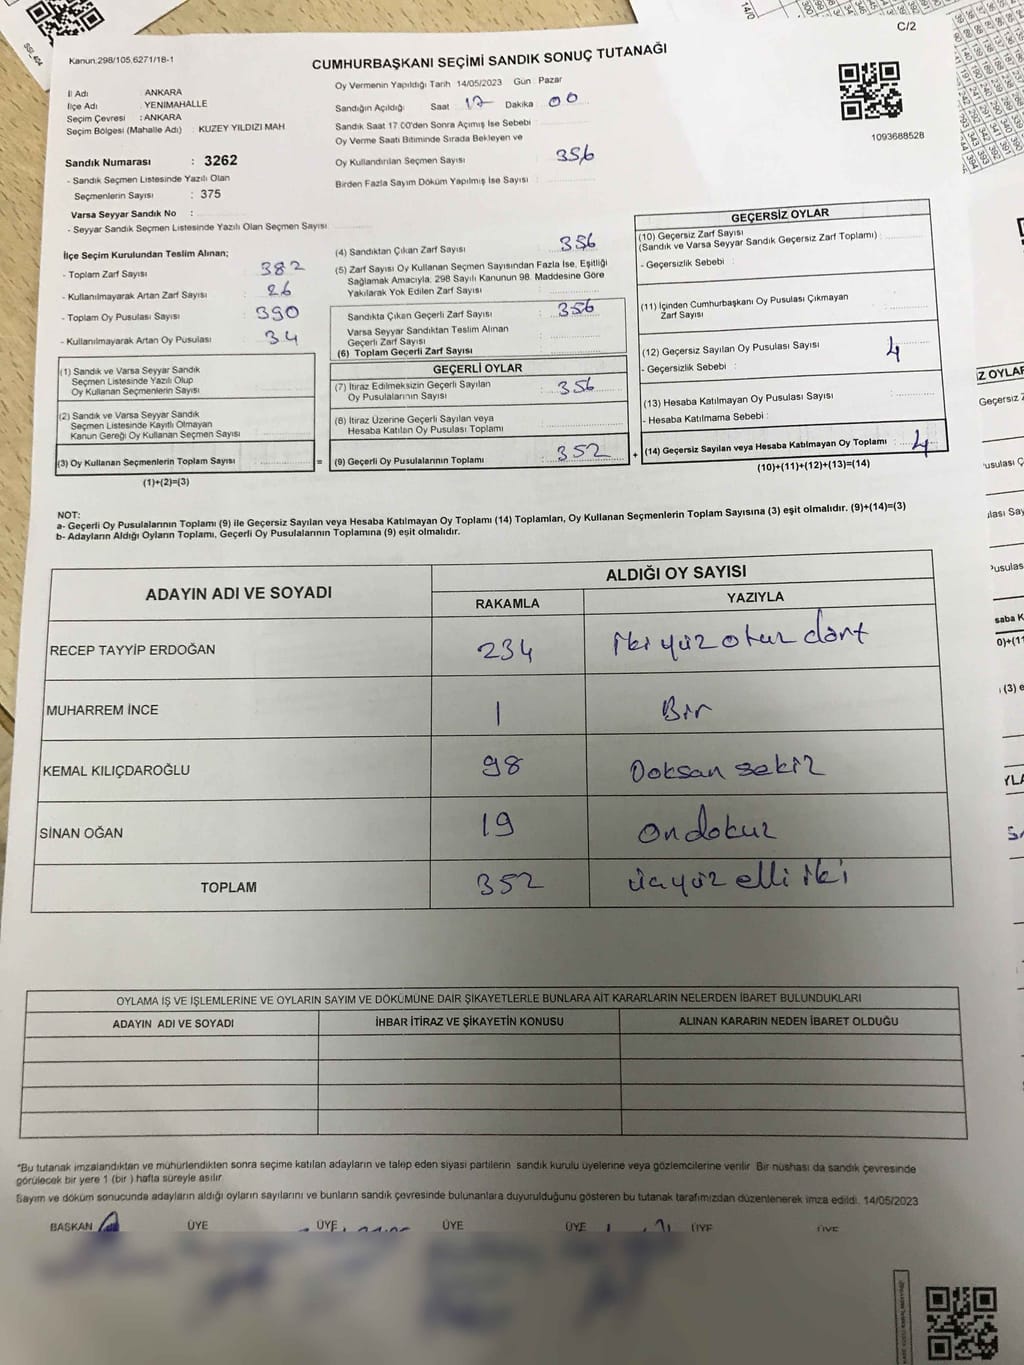 C/2
Kanun.298/105,6271/18-1
CUMHURBAŞKANI SEÇİMİ SANDIK SONUÇ TUTANAĞI
İl Adı ANKARA
İlçe Adı : YENİMAHALLE
Seçim Çevresi : ANKARA
Seçim Bölgesi (Mahalle Adı) : KUZEY YILDIZI MAH
Sandık Numarası : 3262
- Sandık Seçmen Listesinde Yazılı Olan
Seçmenlerin Sayısı : 375
Varsa Seyyar Sandık No :
- Seyyar Sandık Seçmen Listesinde Yazılı Olan Seçmen Sayısı
Oy Vermenin Yapıldığı Tarih 14/05/2023 Gün Pazar
Sandığın Açıldığı : Saat 17 Dakika 00
Sandık Saat 17:00'den Sonra Açılmış İse Sebebi :
Oy Verme Saati Bitiminde Sırada Bekleyen ve
Oy Kullandırılan Seçmen Sayısı : 356
Birden Fazla Sayım Döküm Yapılmış İse Sayısı :
1093688528
İlçe Seçim Kurulundan Teslim Alınan;
- Toplam Zarf Sayısı : 382
- Kullanılmayarak Artan Zarf Sayısı : 26
- Toplam Oy Pusulası Sayısı : 390
- Kullanılmayarak Artan Oy Pusulası : 34
(1) Sandık ve Varsa Seyyar Sandık
Seçmen Listesinde Yazılı Olup
Oy Kullanan Seçmenlerin Sayısı
(2) Sandık ve Varsa Seyyar Sandık
Seçmen Listesinde Kayıtlı Olmayan
Kanun Gereği Oy Kullanan Seçmen Sayısı
(3) Oy Kullanan Seçmenlerin Toplam Sayısı :
(1)+(2)=(3)
(4) Sandıktan Çıkan Zarf Sayısı : 356
(5) Zarf Sayısı Oy Kullanan Seçmen Sayısından Fazla İse, Eşitliği
Sağlamak Amacıyla; 298 Sayılı Kanunun 98. Maddesine Göre
Yakılarak Yok Edilen Zarf Sayısı :
Sandıkta Çıkan Geçerli Zarf Sayısı : 356
Varsa Seyyar Sandıktan Teslim Alınan
Geçerli Zarf Sayısı :
(6) Toplam Geçerli Zarf Sayısı :
GEÇERLİ OYLAR
(7) İtiraz Edilmeksizin Geçerli Sayılan
Oy Pusulalarının Sayısı : 356
(8) İtiraz Üzerine Geçerli Sayılan veya
Hesaba Katılan Oy Pusulası Toplamı :
= (9) Geçerli Oy Pusulalarının Toplamı : 352 +
GEÇERSİZ OYLAR
(10) Geçersiz Zarf Sayısı
(Sandık ve Varsa Seyyar Sandık Geçersiz Zarf Toplamı) :
- Geçersizlik Sebebi :
(11) İçinden Cumhurbaşkanı Oy Pusulası Çıkmayan
Zarf Sayısı :
(12) Geçersiz Sayılan Oy Pusulası Sayısı : 4
- Geçersizlik Sebebi :
(13) Hesaba Katılmayan Oy Pusulası Sayısı :
- Hesaba Katılmama Sebebi :
(14) Geçersiz Sayılan veya Hesaba Katılmayan Oy Toplamı : 4
(10)+(11)+(12)+(13)=(14)
NOT:
a- Geçerli Oy Pusulalarının Toplamı (9) ile Geçersiz Sayılan veya Hesaba Katılmayan Oy Toplamı (14) Toplamları, Oy Kullanan Seçmenlerin Toplam Sayısına (3) eşit olmalıdır. (9)+(14)=(3)
b- Adayların Aldığı Oyların Toplamı, Geçerli Oy Pusulalarının Toplamına (9) eşit olmalıdır.
ADAYIN ADI VE SOYADI ALDIĞI OY SAYISI
RAKAMLA YAZIYLA
RECEP TAYYİP ERDOĞAN 234 iki yüz otuz dört
MUHARREM İNCE 1 Bir
KEMAL KILIÇDAROĞLU 98 Doksan sekiz
SİNAN OĞAN 19 on dokuz
TOPLAM 352 üç yüz elli iki
OYLAMA İŞ VE İŞLEMLERİNE VE OYLARIN SAYIM VE DÖKÜMÜNE DAİR ŞİKAYETLERLE BUNLARA AİT KARARLARIN NELERDEN İBARET BULUNDUKLARI
ADAYIN ADI VE SOYADI İHBAR İTİRAZ VE ŞİKAYETİN KONUSU ALINAN KARARIN NEDEN İBARET OLDUĞU
*Bu tutanak imzalandıktan ve mühürlendikten sonra seçime katılan adayların ve talep eden siyasi partilerin sandık kurulu üyelerine veya gözlemcilerine verilir. Bir nüshası da sandık çevresinde
görülecek bir yere 1 (bir) hafta süreyle asılır
Sayım ve döküm sonucunda adayların aldığı oyların sayılarını ve bunların sandık çevresinde bulunanlara duyurulduğunu gösteren bu tutanak tarafımızdan düzenlenerek imza edildi. 14/05/2023
BAŞKAN ÜYE ÜYE ÜYE ÜYE ÜYE ÜYE